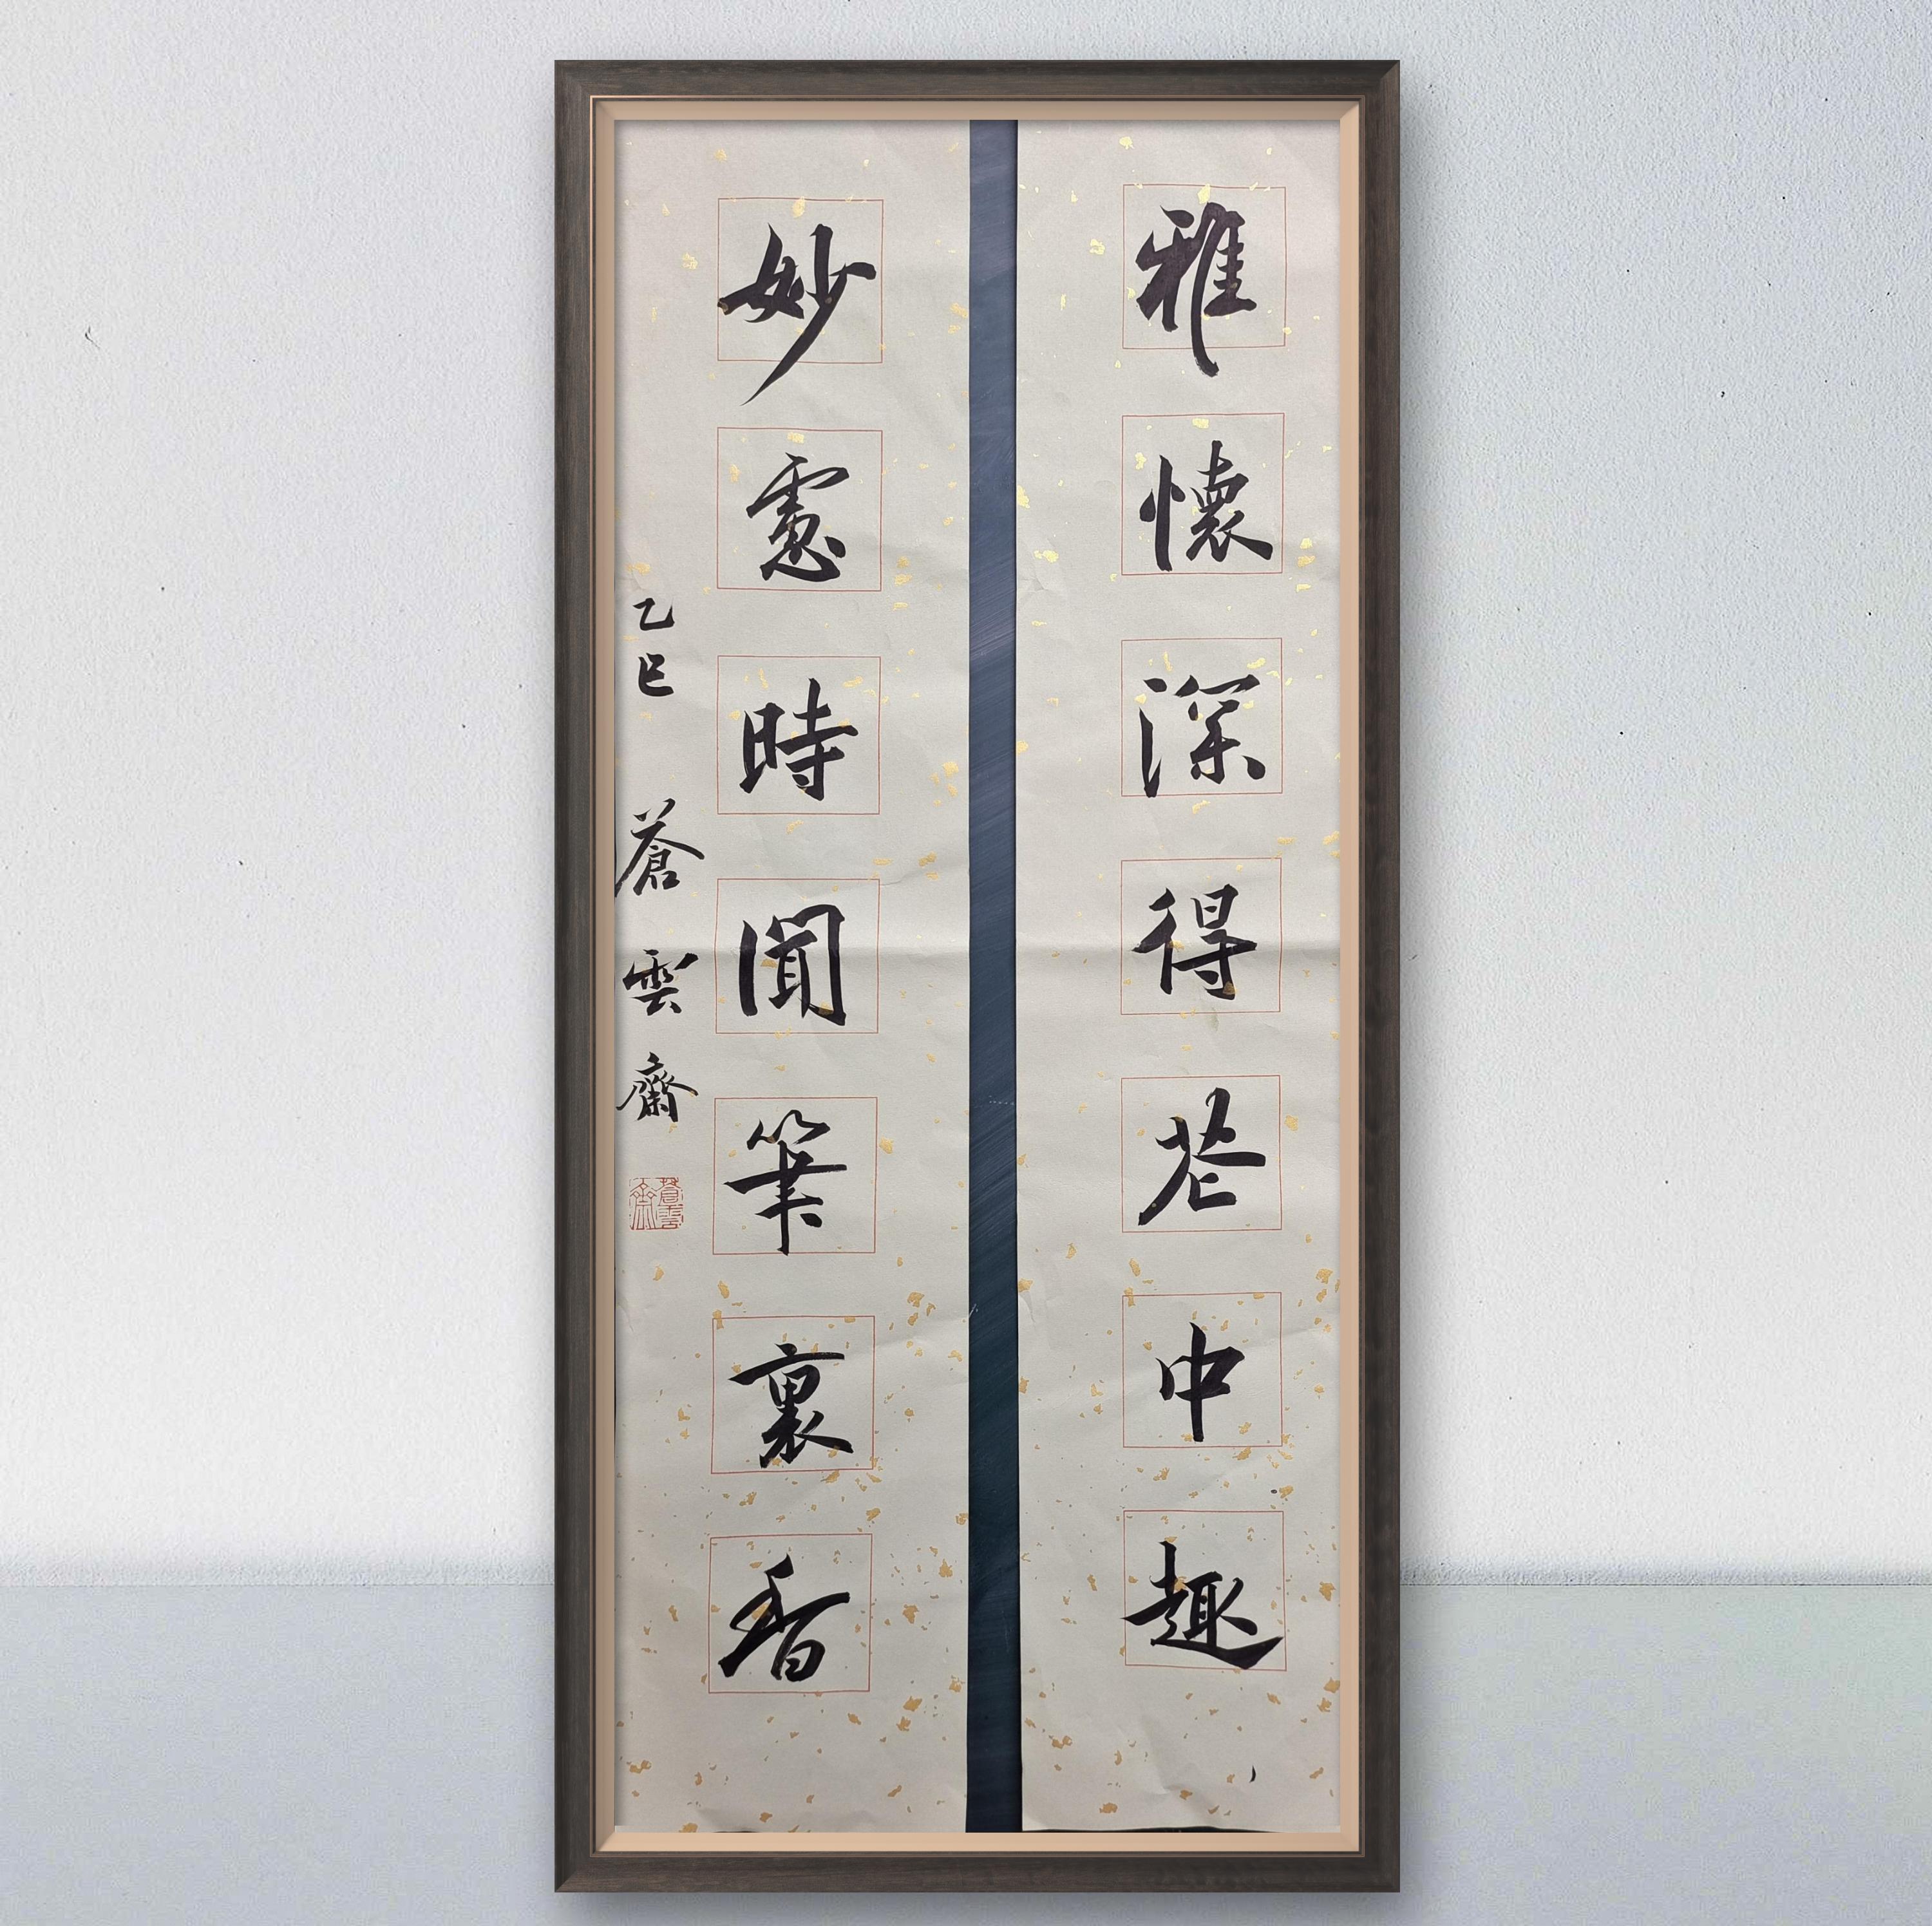 雅懷深得花中趣
妙慮時聞筆裏香
乙巳 蒼雲齋
蒼雲齋